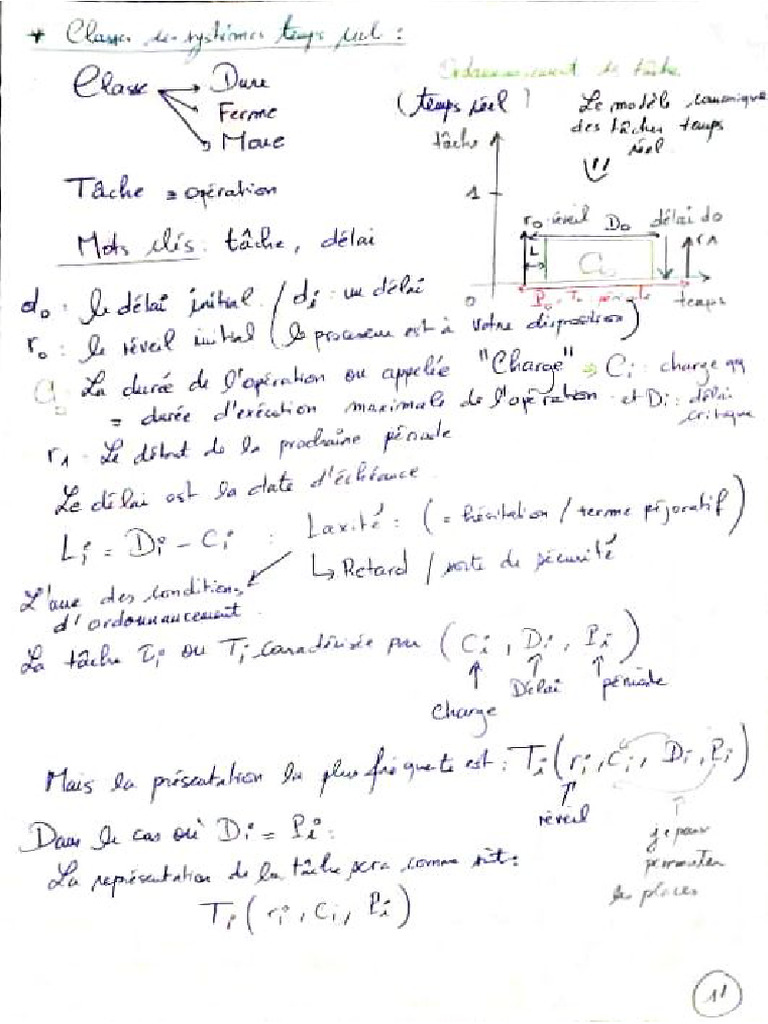 * Classes de systèmes temps réel :
Classe
Dure
Ferme
Moue
Ordonnancement de tâche
(temps réel)
Le modèle canonique
des tâches temps
réel
tâche
1
r₀ réveil D₀ délai d₀
L
C
r₁
0
P₀ période
temps
Tâche = opération
Mots clés : tâche, délai
d₀ : le délai initial / dᵢ : un délai
r₀ : le réveil initial (le processeur est à votre disposition)
C : La durée de l'opération ou appelée "Charge" ⇒ Cᵢ : charge qq
= durée d'exécution maximale de l'opération et Dᵢ : délai
critique
r₁ : Le début de la prochaine période
Le délai est la date d'échéance.
Lᵢ = Dᵢ - Cᵢ : Laxité : (= hésitation / terme péjoratif)
↳ Retard / sorte de sécurité
L'une des conditions
d'ordonnancement.
La tâche τᵢ ou Tᵢ caractérisée par (Cᵢ, Dᵢ, Pᵢ)
Charge
Délai
période
Mais la présentation la plus fréquente est : Tᵢ(rᵢ, Cᵢ, Dᵢ, Pᵢ)
réveil
je peux
permuter
les places
Dans le cas où Dᵢ = Pᵢ :
La représentation de la tâche sera comme suit :
Tᵢ(rᵢ, Cᵢ, Pᵢ)
11